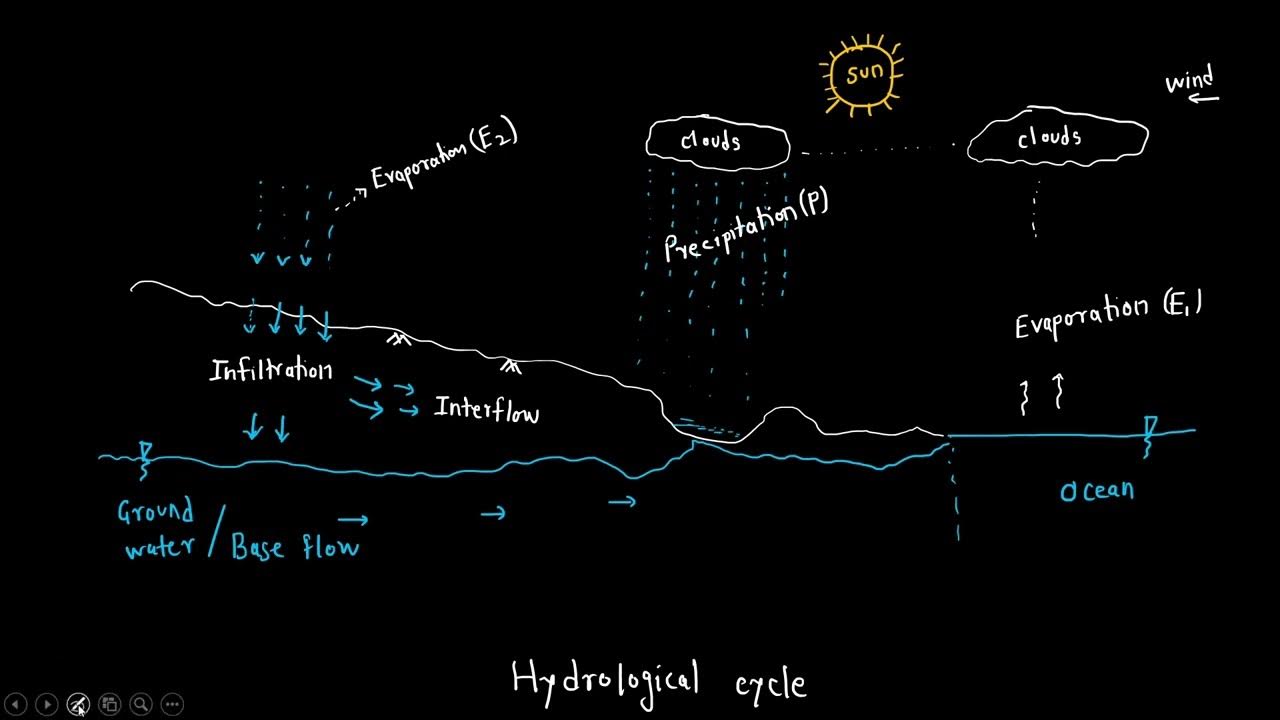 sun
wind
clouds
clouds
Evaporation (E2)
Precipitation (P)
Evaporation (E1)
Infiltration
Interflow
Ocean
Ground
water / Base flow
Hydrological cycle